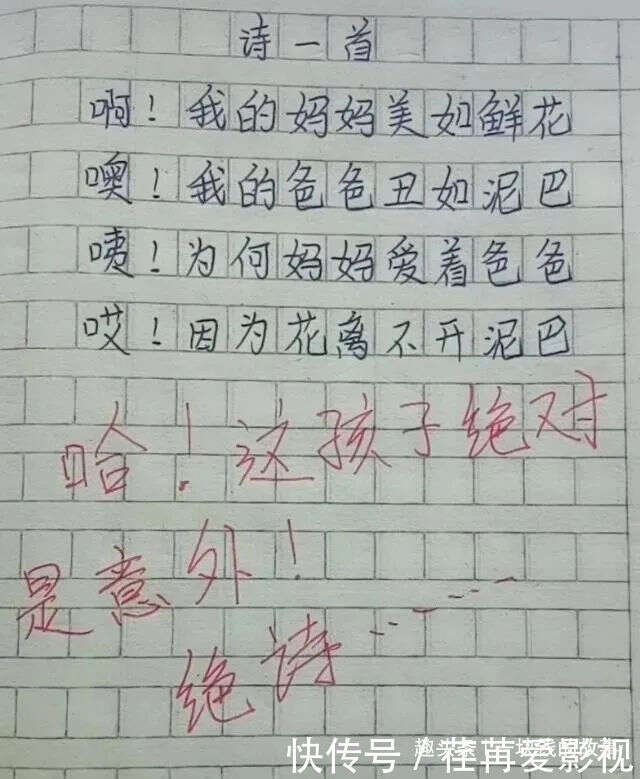 诗一首
啊！我的妈妈美如鲜花
噢！我的爸爸丑如泥巴
咦！为何妈妈爱着爸爸
哎！因为花离不开泥巴
哈！这孩子绝对
是意外！
绝诗……
快传号/荏苒爱影视